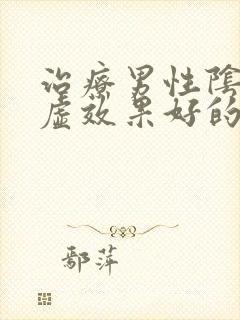 治療男性陰
虛效果好的
鄢萍